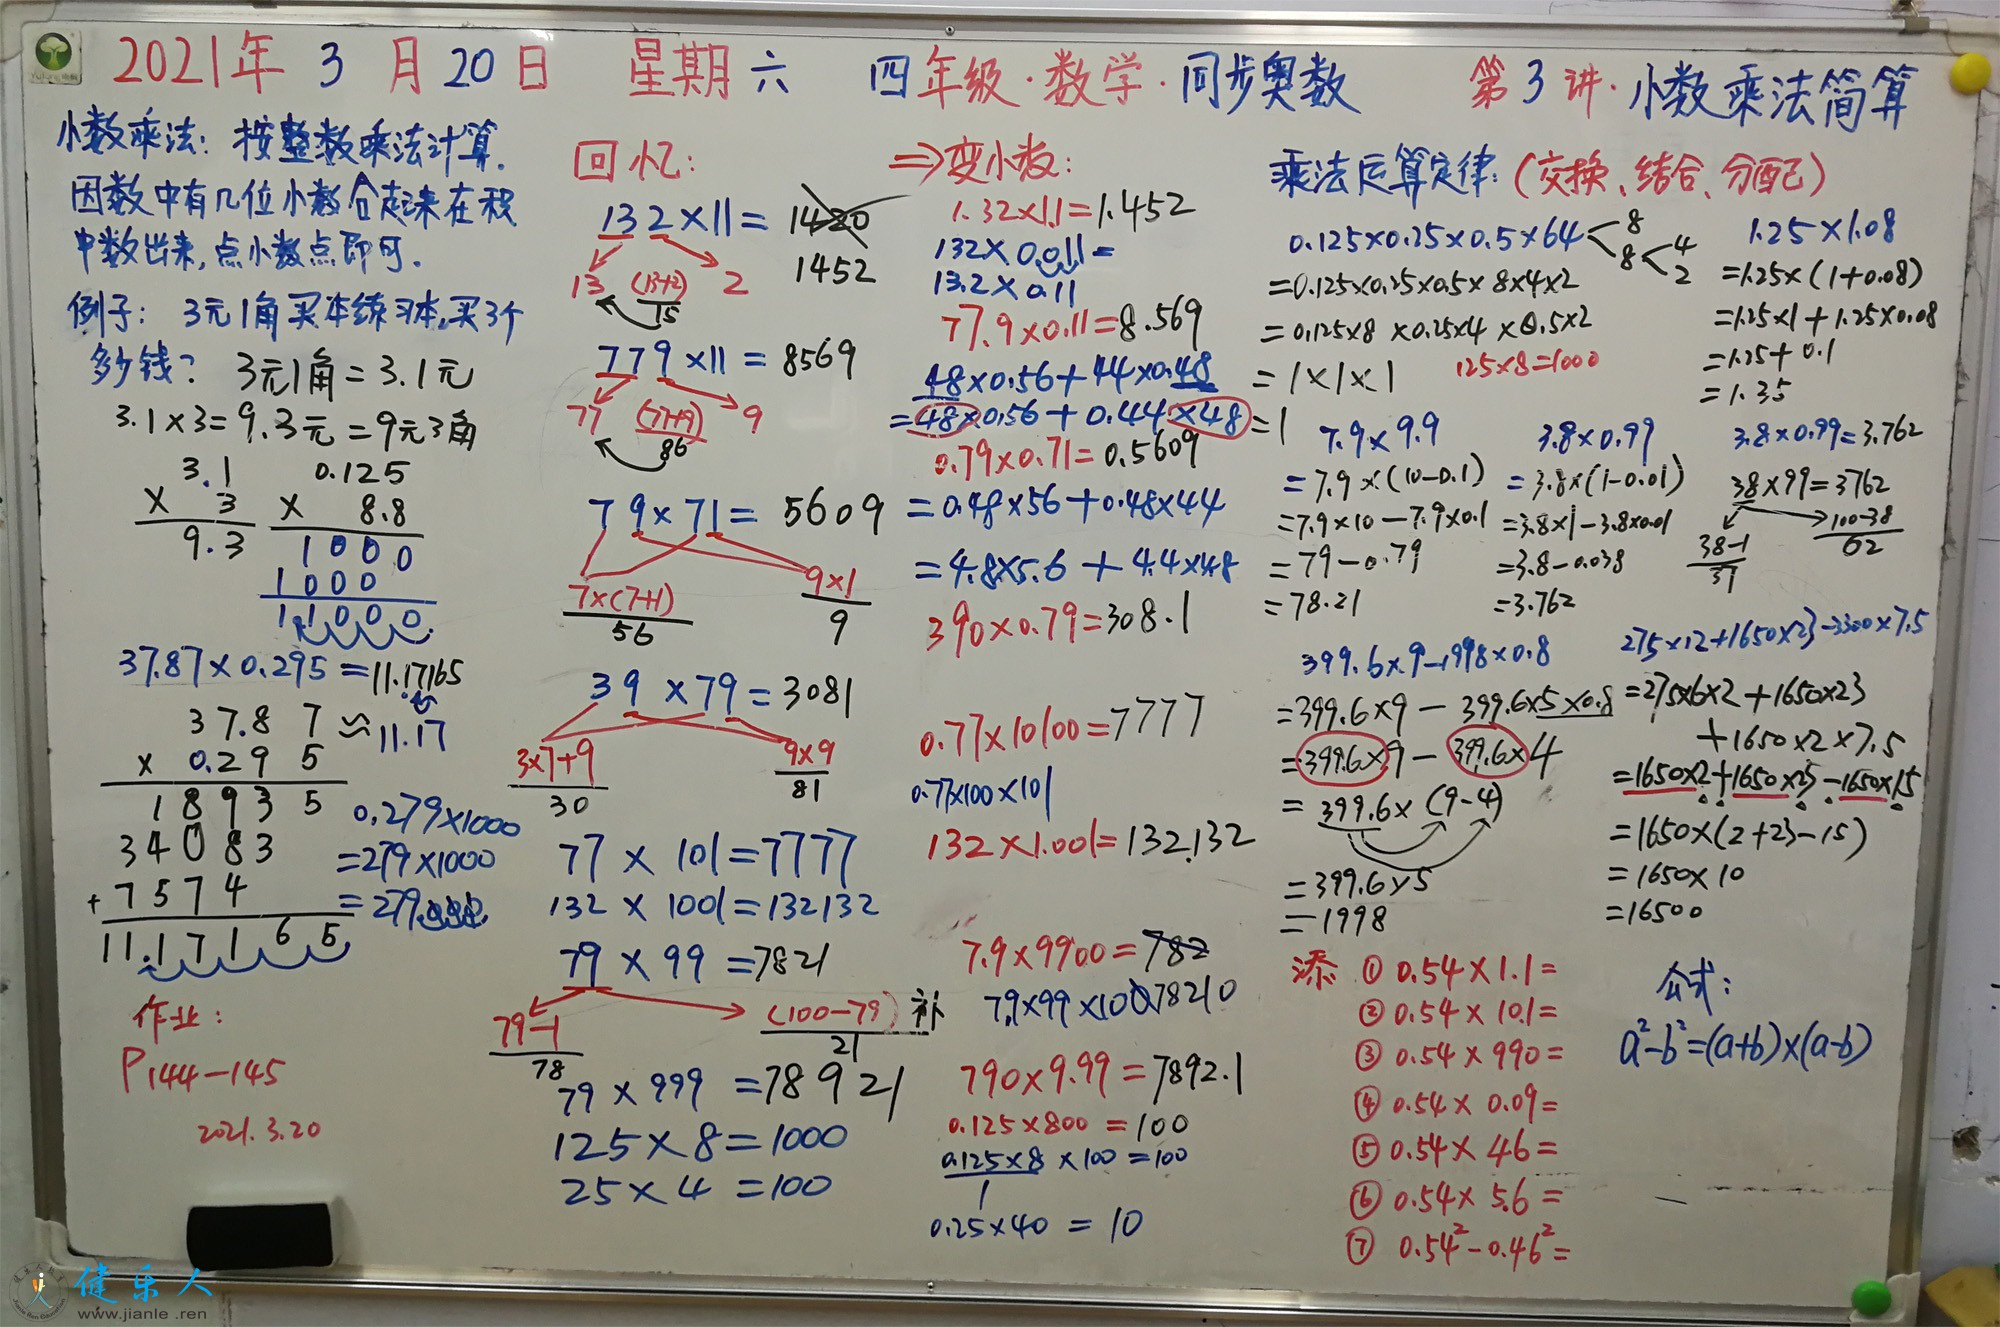 2021年 3 月 20 日 星期六 四年级·数学·同步奥数 第3讲·小数乘法简算
小数乘法: 按整数乘法计算.
因数中有几位小数合起来在积
中数出来,点小数点即可.
例子: 3元1角买本练习本,买3个
多少钱? 3元1角=3.1元
3.1×3=9.3元=9元3角
3.1
× 3
9.3
0.125
× 8.8
1000
1000
1.1000
37.87×0.295=11.17165
≈11.17
37.87
× 0.295
18935
34083
+7574
11.17165
0.279×1000
=279×1000
作业:
P144-145
2021.3.20
回忆:
132×11=1420
1452
13 (13+2) 2
15
779×11=8569
77 (77+9) 9
86
79×71=5609
7×(7+1) 9×1
56 9
39×79=3081
3×7+9 9×9
30 81
77×101=7777
132×1001=132132
79×99=7821
79-1 (100-79) 补
78 21
79×999=78921
125×8=1000
25×4=100
⇒变小数:
1.32×1.1=1.452
132×0.011=
13.2×0.11
77.9×0.11=8.569
48×0.56+44×0.48
=48×0.56+0.44×48
0.79×0.71=0.5609
=0.48×56+0.48×44
=4.8×5.6+4.4×4.8
390×0.79=308.1
0.77×10100=7777
0.77×100×101
132×1.001=132.132
7.9×9900=782
7.9×99×100 78210
790×9.99=7892.1
0.125×800=100
0.125×8×100=100
1
0.25×40=10
乘法运算定律:(交换、结合、分配)
0.125×0.25×0.5×64
8
8
4
2
=0.125×0.25×0.5×8×4×2
=0.125×8×0.25×4×0.5×2
=1×1×1
125×8=1000
=1
1.25×1.08
=1.25×(1+0.08)
=1.25×1+1.25×0.08
=1.25+0.1
=1.35
7.9×9.9
=7.9×(10-0.1)
=7.9×10-7.9×0.1
=79-0.79
=78.21
3.8×0.99
=3.8×(1-0.01)
=3.8×1-3.8×0.01
=3.8-0.038
=3.762
3.8×0.99=3.762
38×99=3762
38-1 100-38
37 62
399.6×9-1998×0.8
=399.6×9-399.6×5×0.8
=399.6×9-399.6×4
=399.6×(9-4)
=399.6×5
=1998
275×12+1650×23-3300×7.5
=275×6×2+1650×23
+1650×2×7.5
=1650×2+1650×23-1650×15
=1650×(2+23-15)
=1650×10
=16500
添 ① 0.54×1.1=
② 0.54×10.1=
③ 0.54×990=
④ 0.54×0.09=
⑤ 0.54×46=
⑥ 0.54×5.6=
⑦ 0.54²-0.46²=
公式:
a²-b²=(a+b)×(a-b)
健乐人
www.jianle.ren